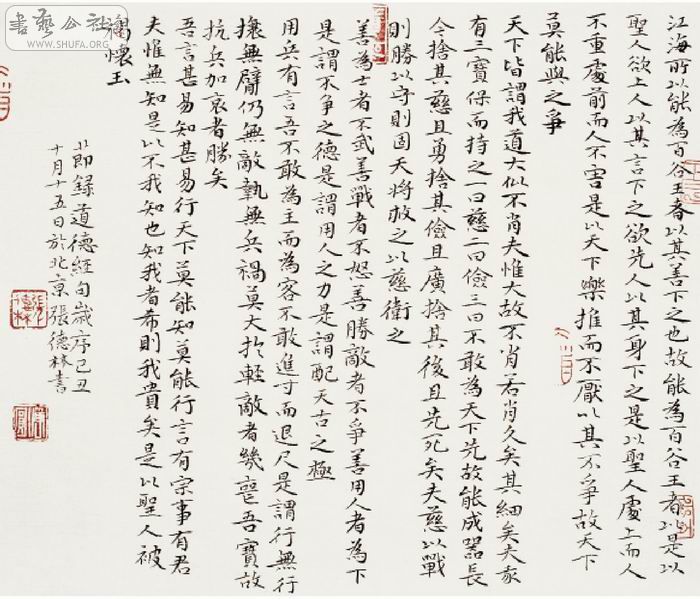 江海所以能為百谷王者以其善下之也故能為百谷王者以是以
聖人欲上人以其言下之欲先人以其身下之是以聖人處上而人
不重處前而人不害是以天下樂推而不厭以其不爭故天下
莫能與之爭
天下皆謂我道大似不肖夫惟大故不肖若肖久矣其細矣夫我
有三寶保而持之一曰慈二曰儉三曰不敢為天下先故能成器長
今捨其慈且勇捨其儉且廣捨其後且先死矣夫慈以戰
則勝以守則固天將救之以慈衛之
善為士者不武善戰者不怒善勝敵者不爭善用人者為下
是謂不爭之德是謂用人之力是謂配天古之極
用兵有言吾不敢為主而為客不敢進寸而退尺是謂行無行
攘無臂仍無敵執無兵禍莫大於輕敵者幾喪吾寶故
抗兵加哀者勝矣
吾言甚易知甚易行天下莫能知莫能行言有宗事有君
夫惟無知是以不我知也知我者希則我貴矣是以聖人被
褐懷玉
節錄道德經句歲序己丑
十月十五日於北京張德林書
書藝公社
WWW.SHUFA.ORG